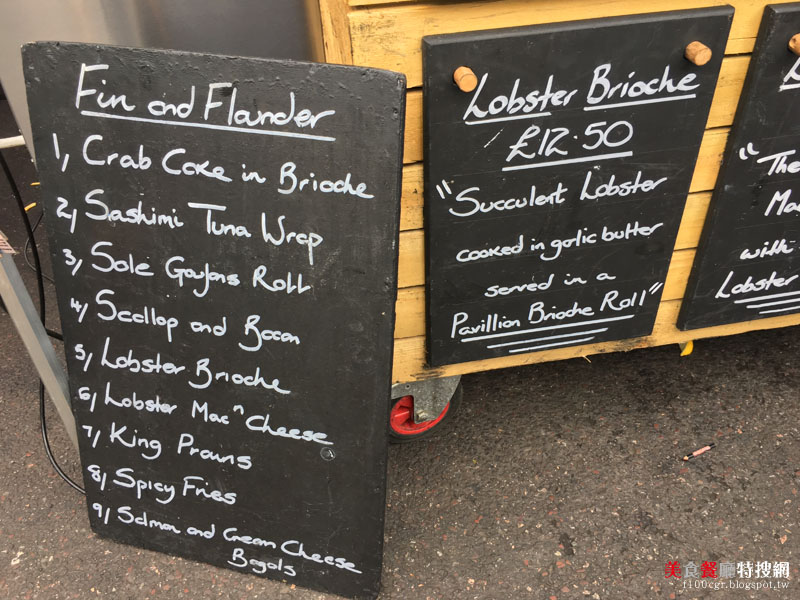 Fin and Flander
1, Crab Cake in Brioche
2, Sashimi Tuna Wrap
3, Sole Goujons Roll
4, Scallop and Bacon
5, Lobster Brioche
6, Lobster Mac "n" Cheese
7, King Prawns
8, Spicy Fries
9, Salmon and Cream Cheese
Bagels
Lobster Brioche
£12.50
"Succulent Lobster
cooked in garlic butter
served in a
Pavillion Brioche Roll"
"The
Mac
with
Lobster
美食餐廳特搜網
r100cgr.blogspot.tw